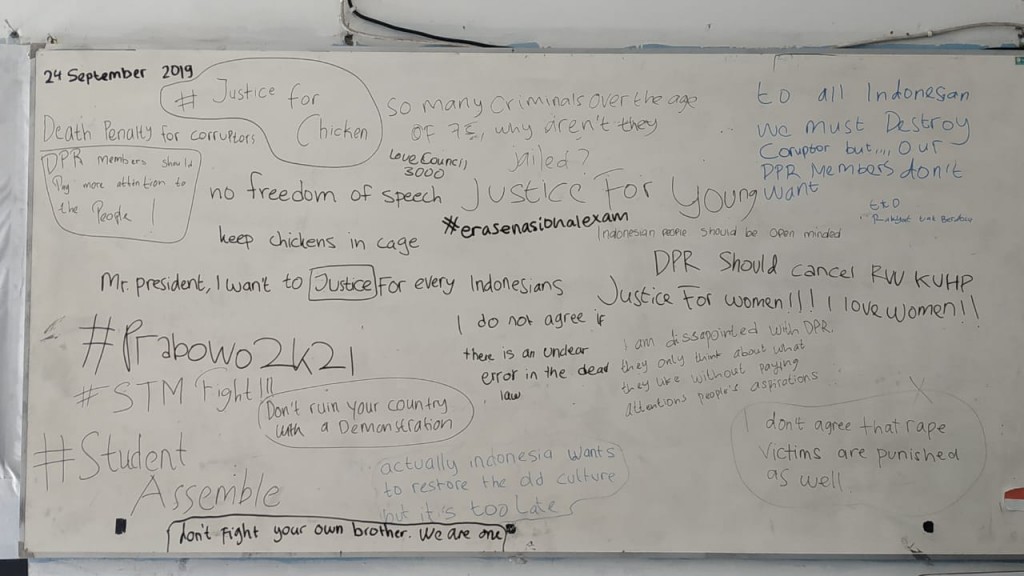 24 September 2019
# Justice for
Chicken
Death Penalty for corruptors
DPR members should
Pay more attention to
the People !
So many Criminals over the age
OF 75, why aren't they
jailed?
Love Council
3000
to all Indonesian
We must Destroy
Coruptor but,,,, our
DPR Members don't
want
no freedom of speech
Justice For Young
#erasenasionalexam
keep chickens in cage
Indonesian people should be open minded
Mr. president, I want to Justice For every Indonesians
DPR Should cancel RW KUHP
Justice For women!!! I love women!!
#Prabowo2k21
I do not agree if
there is an unclear
error in the dead
law
I am dissapointed with DPR.
they only think about what
they like without paying
attentions people's aspirations
# STM Fight!!!
Don't ruin your country
with a Demonstration
#Student
Assemble
actually indonesia wants
to restore the old culture
but it's too late
I don't agree that rape
victims are punished
as well
don't fight your own brother. We are one